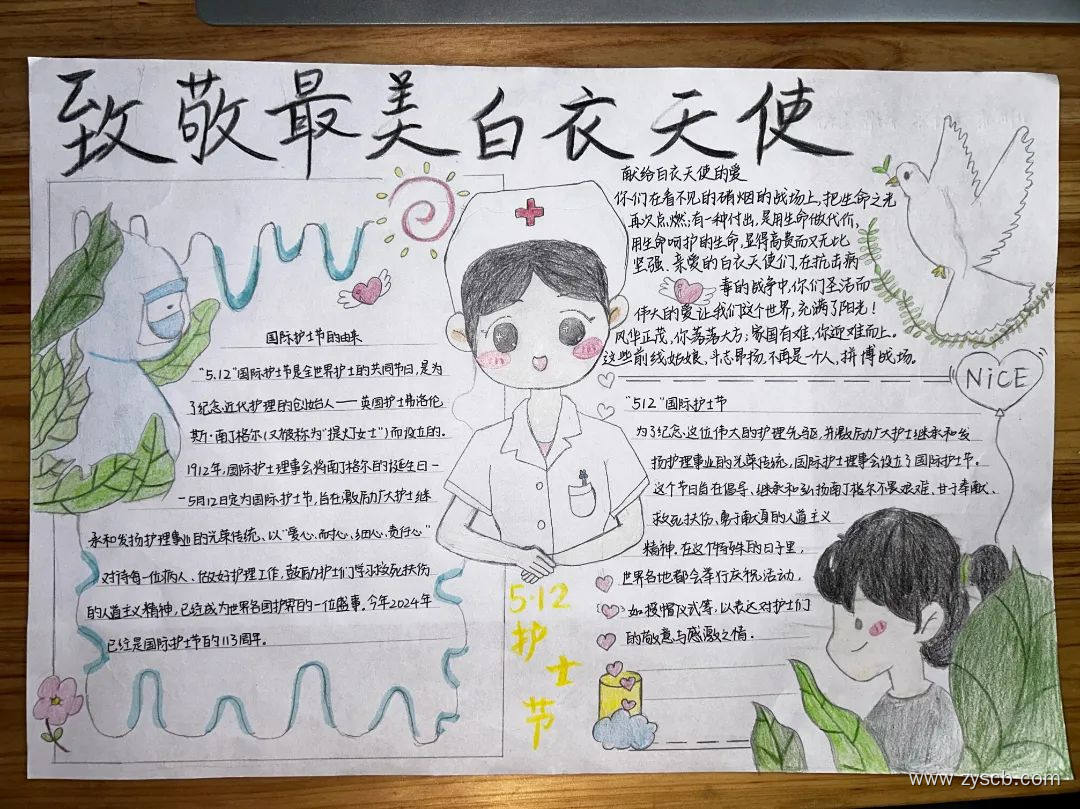 致敬最美白衣天使
国际护士节的由来
“5.12”国际护士节是全世界护士的共同节日,是为
了纪念近代护理的创始人——英国护士弗洛伦
斯·南丁格尔(又被称为“提灯女士”)而设立的。
1912年,国际护士理事会将南丁格尔的诞生日—
—5月12日定为国际护士节,旨在激励广大护士继
承和发扬护理事业的光荣传统、以“爱心、耐心、细心、责任心”
对待每一位病人、做好护理工作,鼓励护士们学习救死扶伤
的人道主义精神,已经成为世界各国护界的一位盛事,今年2024年
已经是国际护士节日的113周年。
献给白衣天使的爱
你们在看不见的硝烟的战场上,把生命之光
再次点燃,有一种付出,是用生命做代价,
用生命呵护的生命,显得高贵而又无比
坚强、亲爱的白衣天使们,在抗击病
毒的战争中,你们圣洁而
伟大的爱让我们这个世界,充满了阳光!
风华正茂,你荡荡大方;家国有难,你迎难而上。
这些前线姑娘,斗志昂扬,不再是一人,拼博战场。
NiCE
“512”国际护士节
为了纪念这位伟大的护理先驱,并激励广大护士继承和发
扬护理事业的光荣传统,国际护士理事会设立了国际护士节。
这个节日旨在倡导、继承和弘扬南丁格尔不畏艰难、甘于奉献、
救死扶伤、勇于献身的人道主义
精神,在这个特殊的日子里,
世界各地都会举行庆祝活动,
如授帽仪式等,以表达对护士们
的敬意与感激之情.
5·12
护
士
节
www.zyscb.com